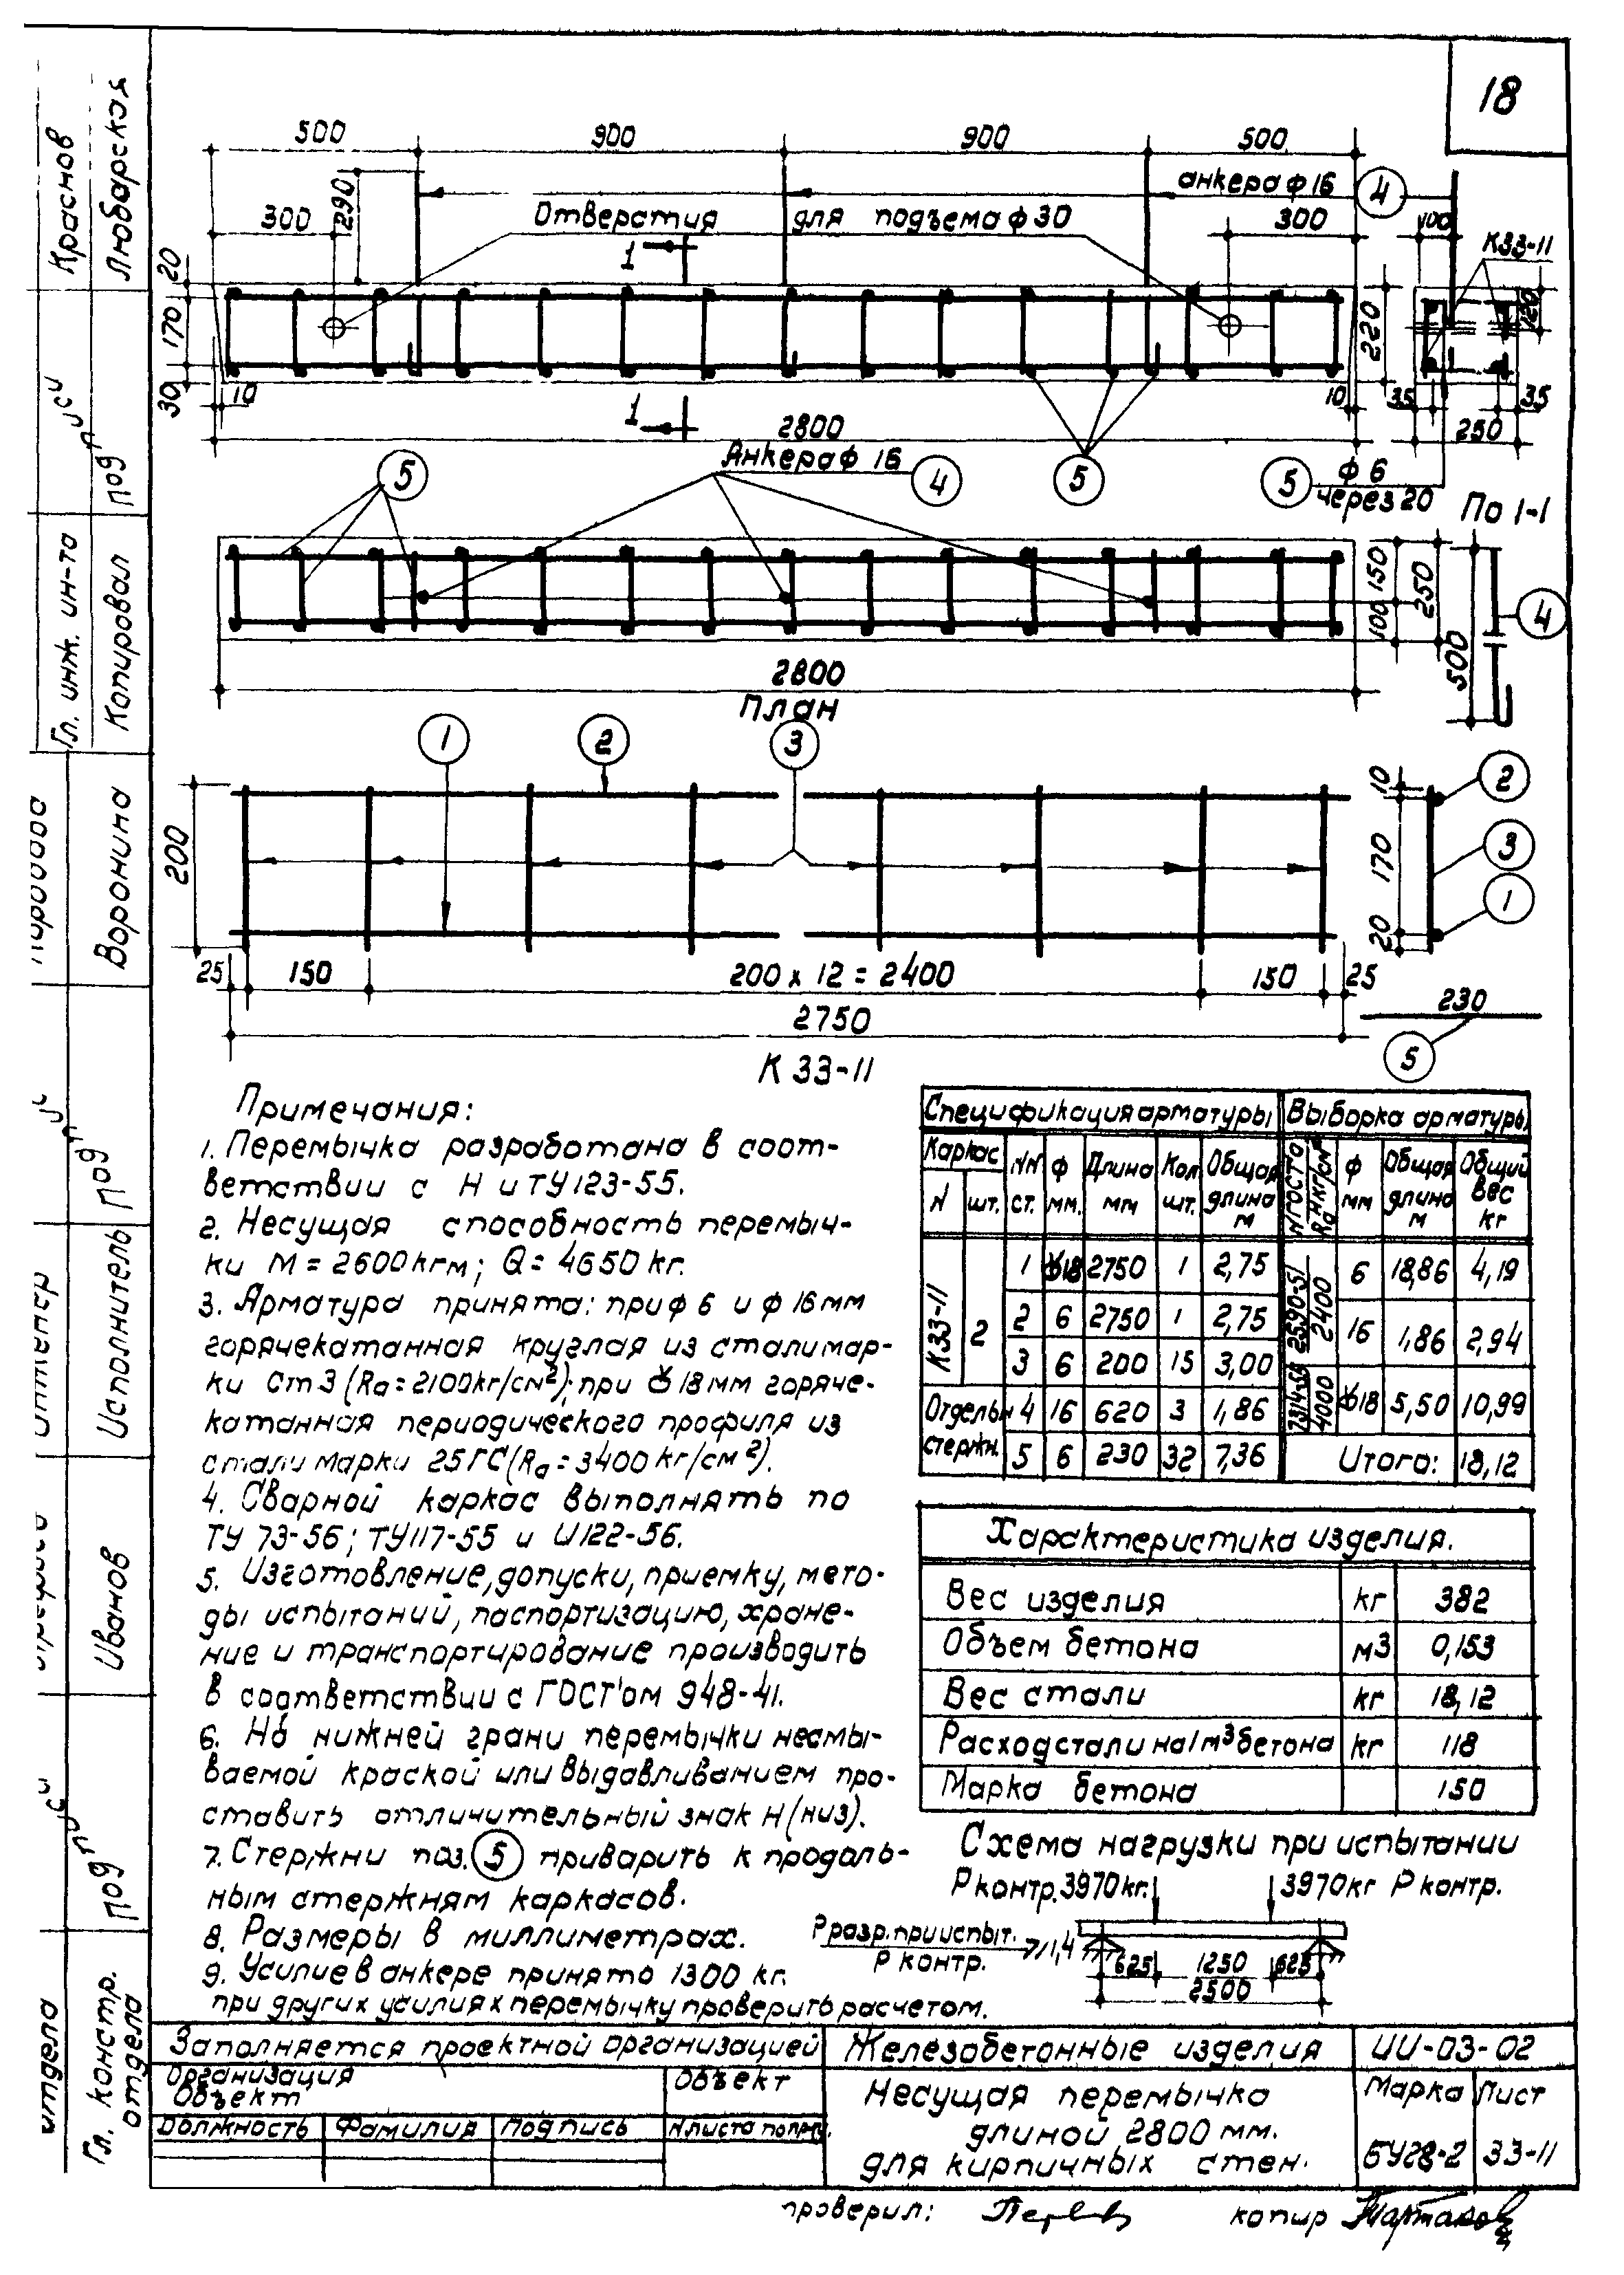 18
500 900 900 500
анкера ф 16 4
300 290 Отверстия для подъема ф 30 300 100
К33-11
1
20 170 30 10
220 120
1 2800 10 35 35
250
5 Анкера ф 16 4 5 5 ф 6
через 20 По 1-1
150 100 250 500 4
2800
План
1 2 3
200
10 170 20
2 3 1
25 150 200 х 12 = 2400 150 25
2750
230
5
К 33-11
Примечания:
1. Перемычка разработана в соот-
ветствии с Н и ТУ 123-55.
2. Несущая способность перемыч-
ки М = 2600кгм; Q = 4650 кг.
3. Арматура принята: при ф 6 и ф 16 мм
горячекатанная круглая из стали мар-
ки Ст 3 (Rа = 2100кг/см²); при ф 18 мм горяче-
катанная периодического профиля из
стали марки 25ГС (Rа = 3400 кг/см²).
4. Сварной каркас выполнять по
ТУ 73-56; ТУ117-55 и И122-56.
5. Изготовление, допуски, приемку, мето-
ды испытаний, паспортизацию, хране-
ние и транспортирование производить
в соответствии с ГОСТ'ом 948-41.
6. На нижней грани перемычки несмы-
ваемой краской или выдавливанием про-
ставить отличительный знак Н (низ).
7. Стержни поз. 5 приварить к продоль-
ным стержням каркасов.
8. Размеры в миллиметрах.
9. Усилие в анкере принято 1300 кг.
при других усилиях перемычку проверить расчетом.
Спецификация арматуры Выборка арматуры
Каркас NN ст. ф мм. Длина мм Кол шт. Общая длина м N ГОСТа Rан кг/см² ф мм Общая длина м Общий вес кг
N шт.
К33-11 2 1 ф18 2750 1 2,75 2590-51 2400 6 18,86 4,19
2 6 2750 1 2,75 16 1,86 2,94
3 6 200 15 3,00
Отдельн 4 16 620 3 1,86 7314-55 4000 ф18 5,50 10,99
стержн. 5 6 230 32 7,36 Итого: 18,12
Характеристика изделия.
Вес изделия кг 382
Объем бетона м3 0,153
Вес стали кг 18,12
Расход стали на 1м³ бетона кг 118
Марка бетона 150
Схема нагрузки при испытании
Р контр. 3970кг. 3970кг Р контр.
Р разр. при испыт. ⩾ 1,4
Р контр.
625 1250 625
2500
Заполняется проектной организацией
Организация Объект
Объект
Должность Фамилия Подпись
Железобетонные изделия ИИ-03-02
Несущая перемычка Марка Лист
длиной 2800 мм.
для кирпичных стен. БУ28-2 33-11
проверил: копир
Краснов
Любарская
Гл. инж. ин-та
Копировал
Воронина
Под п"
Исполнитель
Иванов
Под п"
Гл. констр.
отдела